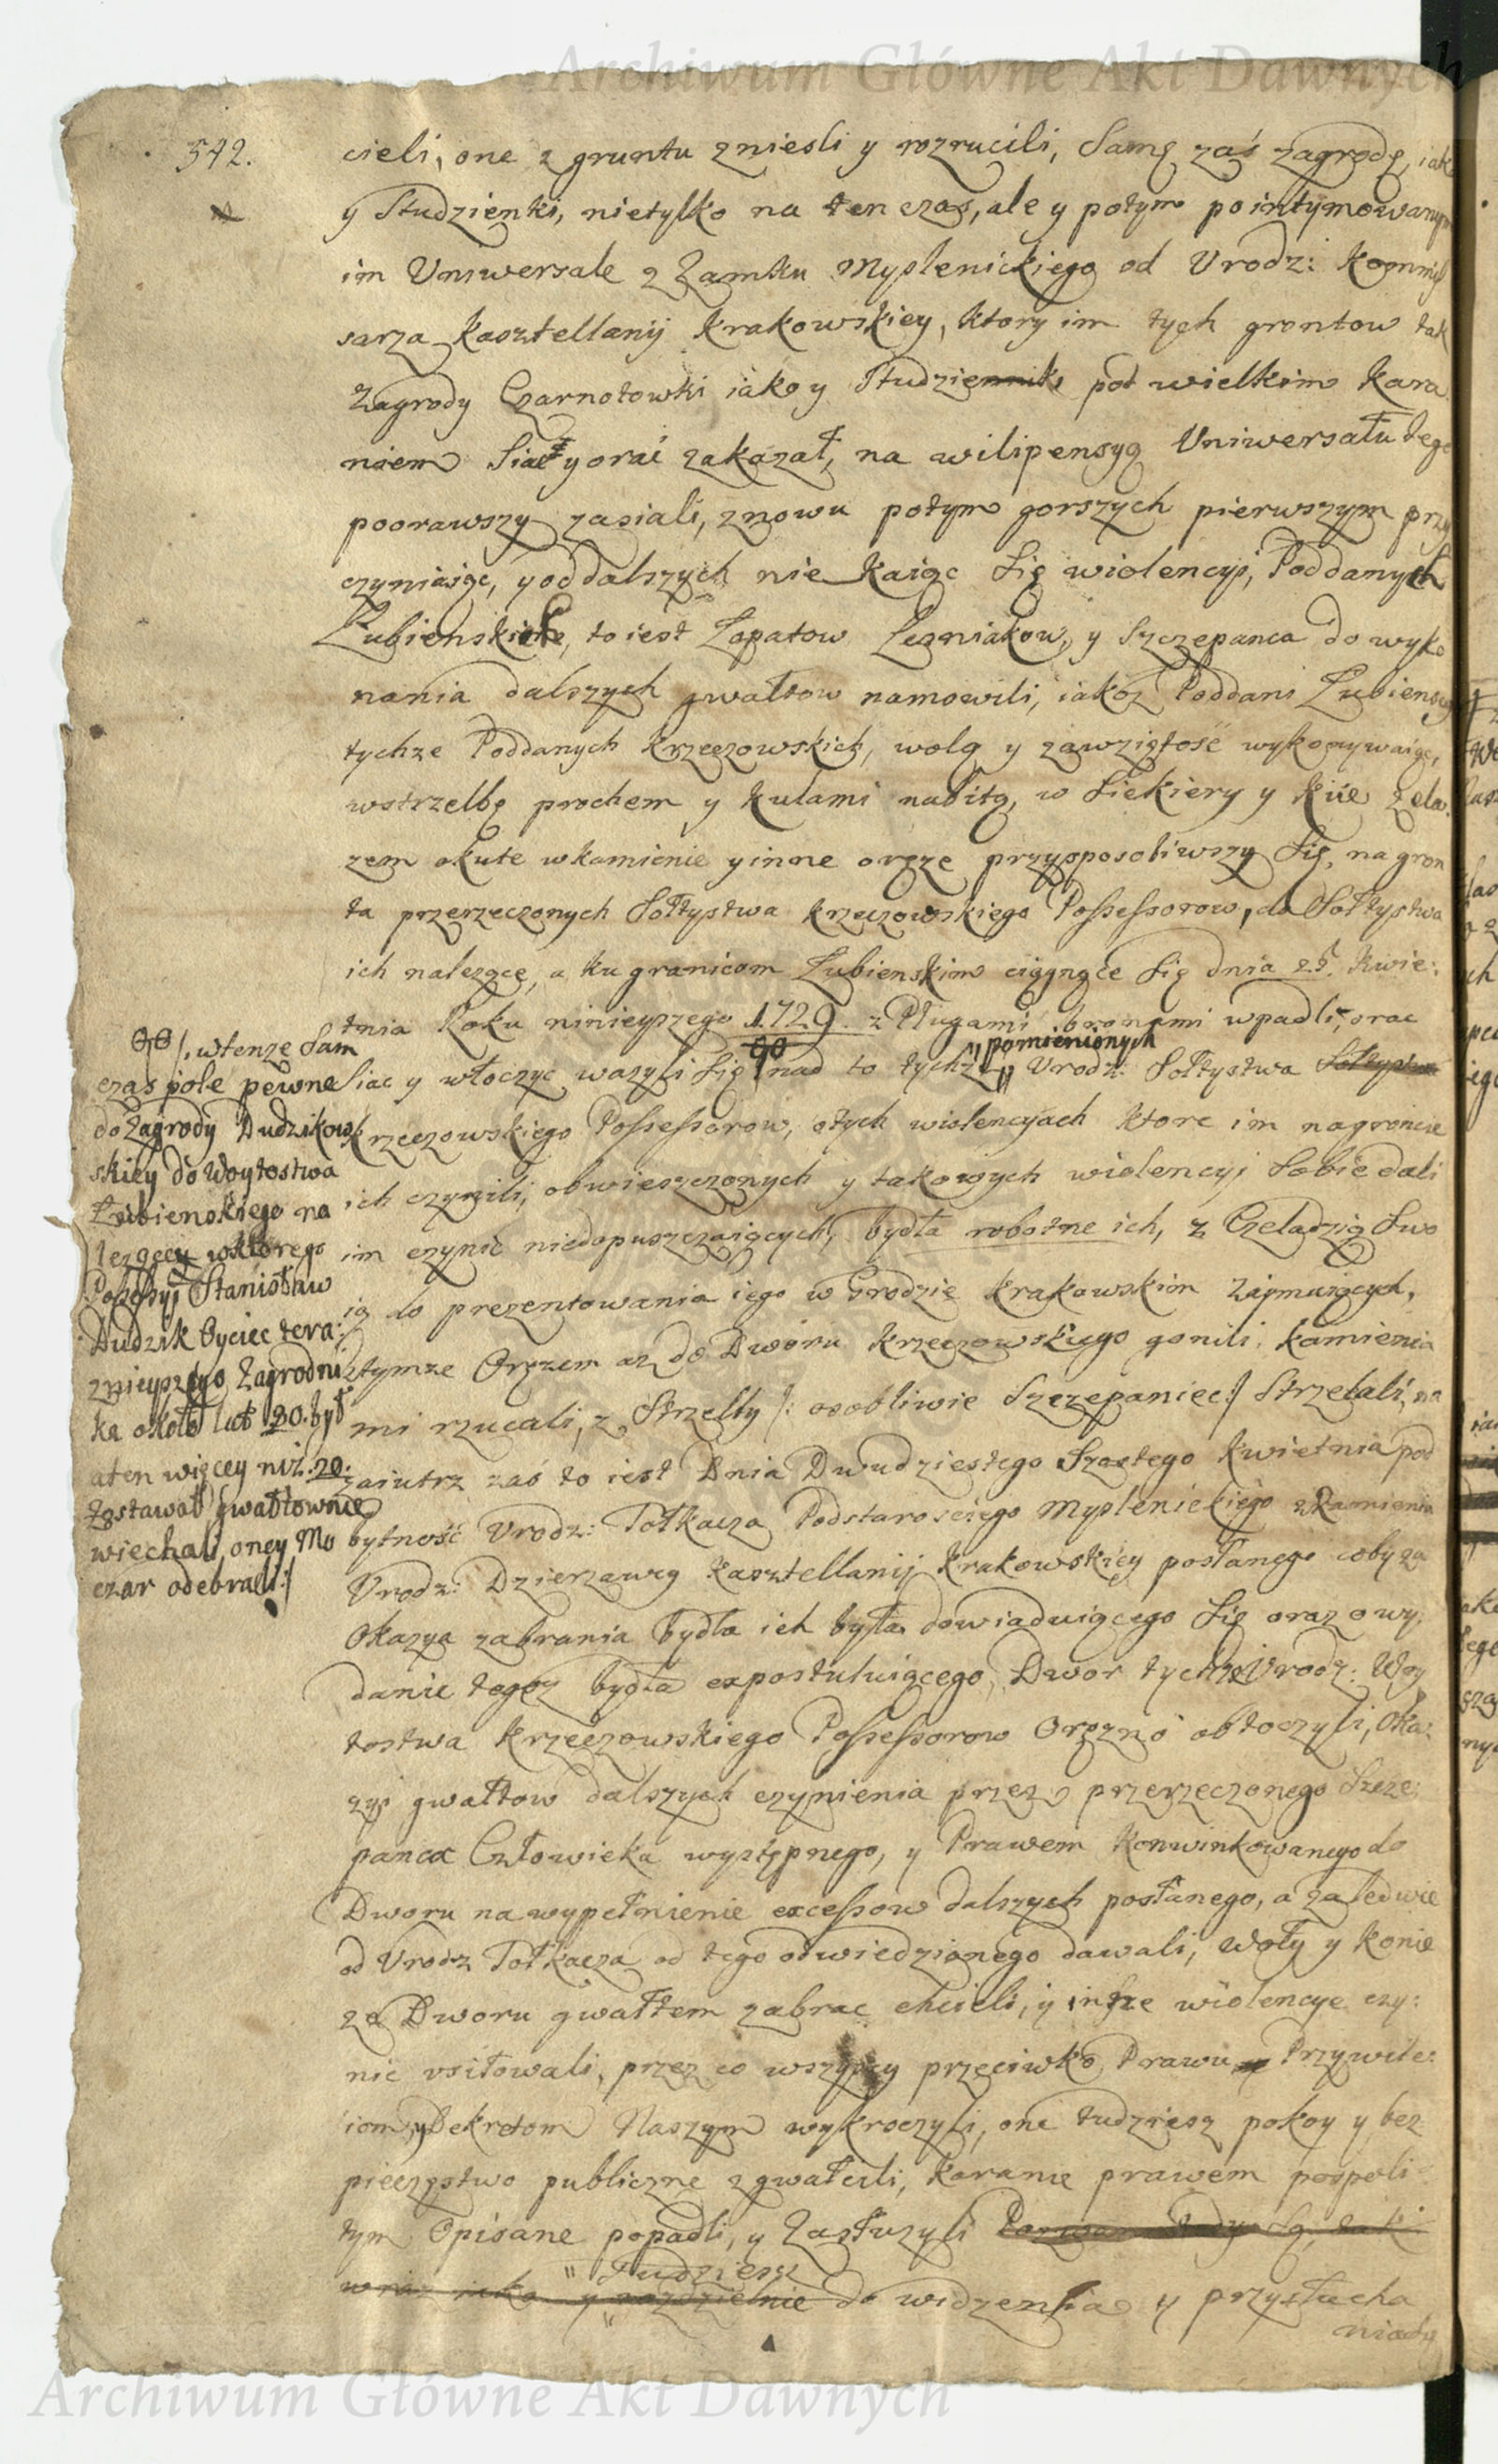 Archiwum Główne Akt Dawnych
542.
cieli, one z gruntu zniesli y rozrucili, Samę zaś zagrodę, iak
y Studzienki, nietylko na ten czas, ale y potym po intymowanym
im Uniwersale z Zamku Myslenickiego od Urodz: Kommis
sarza Kasztellanij Krakowskiey, ktory im tych grontow tak
Zagrody Czarnotowki iako y Studzienniki pod wielkim kara
niem Siać y orać zakazał, na wilipensyą Uniwersału tego
poorawszy zasiali, znowu potym gorszych pierwszym przy
czyniaiąc, y od dalszych nie kaiąc Się wiolencyi, Poddanych
Łubienskich, to iest Łopatow Lesniakow, y Szczepanca do wyko
nania dalszych gwałtow namowili, iakoż Poddani Łubienscy
tychze Poddanych Krzeczowskich, wolą y zawziętość wykonywaiąc,
w strzelbę prochem y kulami nabitą, w Siekiery y kiie zela
zem okute w kamienie y inne oręże przysposobiwszy Się, na gron
ta przerzeczonych Sołtystwa Krzeczowskiego Possessorow, do Sołtystwa
ich nalezące, a ku granicom Łubienskim ciągnące Się dnia 25. Kwie:
tnia Roku ninieyszego 1729. z Pługami bronami wpadli, orac
Siac y włoczyc wazyli Się nad to tychże pomienionych Urodz: Sołtystwa
Krzeczowskiego Possessorow, o tych wiolencyach ktore im na groncie
ich czynili, obwieszczonych y takowych wiolencyi Sobie dali
im czynic niedopuszczaiących, bydła robotne ich, z Czeladzią Swo
ią do prezentowania iego w Grodzie Krakowskim Zaymuiących,
z tymze Orężem az do Dworu Krzeczowskiego gonili, kamienia
mi rzucali, z Strzelby /: osobliwie Szczepaniec :/ Strzelali, na
zaiutrz zaś to iest Dnia Dwudziestego Szostego Kwietnia pod
bytność Urodz: Tołkacza Podstarosciego Myslenickiego z Ramienia
Urodz: Dzierzawcy Kasztellanij Krakowskiey posłanego coby za
Okazya zabrania bydła ich była dowiaduiącego Się oraz o wy
danie tegoz bydła expostuluiącego, Dwor tychze Urodz: Woy
tostwa Krzeczowskiego Possessorow Oręzno obtoczyli, Oka:
zyi gwałtow dalszych czynienia przez przerzeczonego Szcze:
panca Człowieka występnego, y Prawem konwinkowanego do
Dworu na wypełnienie excessow dalszych posłanego, a zaledwie
od Urodz Tołkacza od tego odwiedzionego dawali, woły y konie
ze Dworu gwałtem zabrac chcieli, y insze wiolencye czy:
nic usiłowali, przez co wszyscy przeciwko Prawu Przywile:
iom, y Dekretom Naszym wykroczyli, one tudziesz pokoy y bez
pieczęstwo publiczne zgwałcili, karanie prawem pospoli
tym Opisane popadli, y Zasłuzyli
Tudziesz
do widzenia y przysłucha
nia
/: w tenze Sam
czas pole pewne
do Zagrody Dudzikow
skiey do Woytostwa
Łubienskiego na
lezącey w ktorego
Possessyi Stanisław
Dudzik Oyciec tera:
znieyszego Zagrodni
ka około lat 20. był
a ten więcey niż 20.
zostawał gwałtownie
wiechali, oney Mo
czar odebrali :/
Archiwum Główne Akt Dawnych